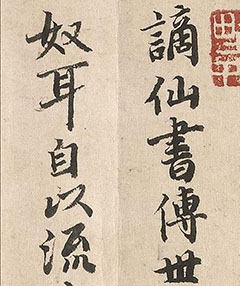 謫仙書傳世
奴耳自以流